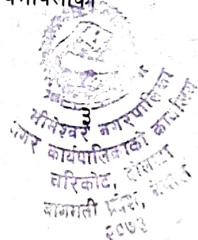 भीमेश्वर नगरपालिका
नगर कार्यपालिकाको कार्यालय
चरिकोट, दोलखा
बागमती प्रदेश, नेपाल
२०७३